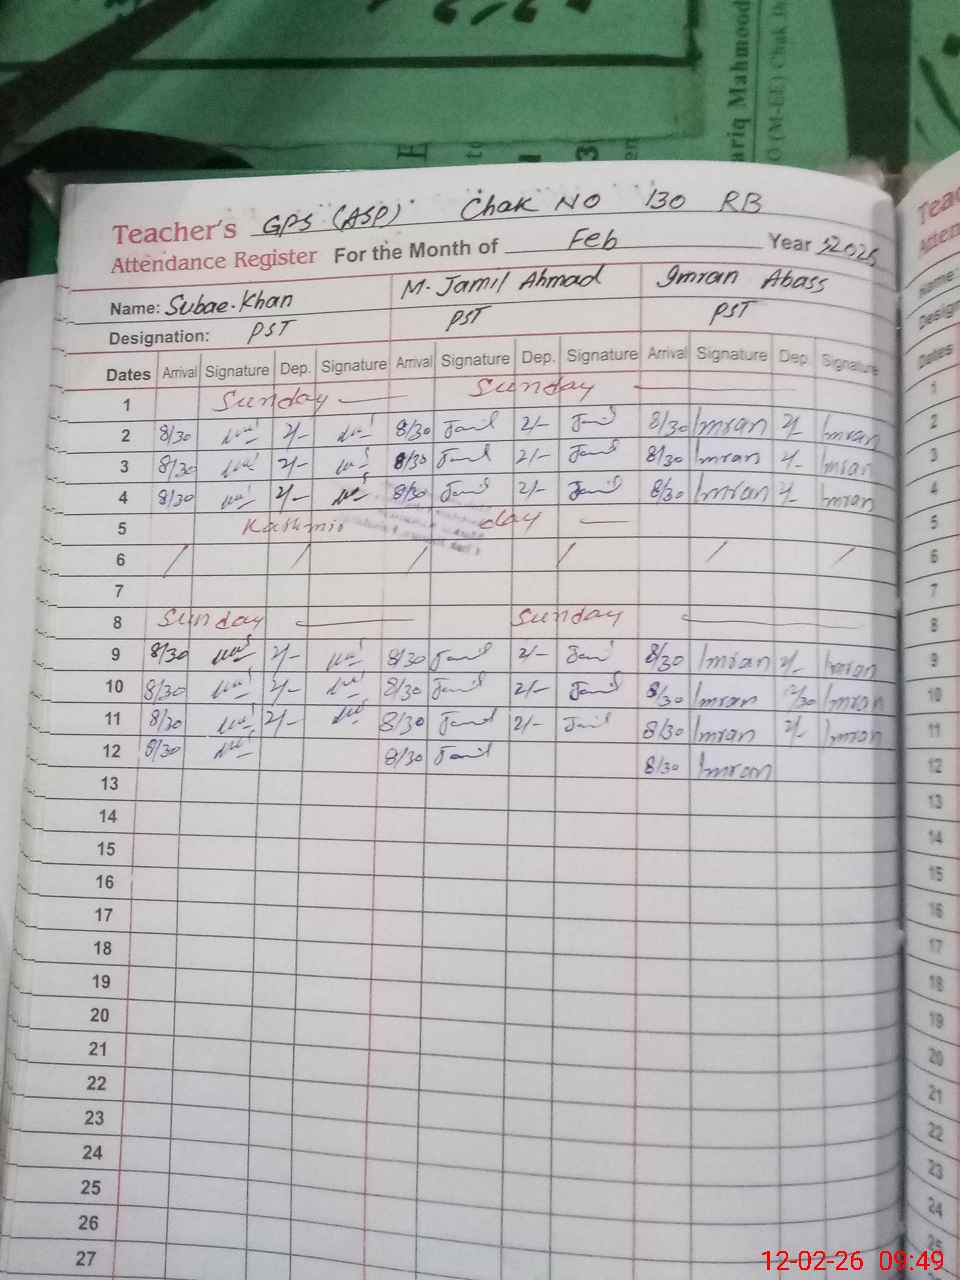 ariq Mahmood
O (M-EE) Chak
Teacher's GPS (ASP) Chak NO 130 RB
Attendance Register For the Month of Feb Year
Name: Subae.Khan M. Jamil Ahmad Imran Abass
Designation: PST PST PST
Dates Arrival Signature Dep. Signature Arrival Signature Dep. Signature Arrival Signature Dep. Signature
1 Sunday Sunday
2 8/30 2/- 8/30 Jamil 2/- Jamil 8/30 Imran 2/- Imran
3 8/30 2/- 8/30 Jamil 2/- Jamil 8/30 Imran 2/- Imran
4 8/30 2/- 8/30 Jamil 2/- Jamil 8/30 Imran 2/- Imran
5 Kashmir day
6 / / / / / /
7
8 Sunday Sunday
9 8/30 2/- 8/30 Jamil 2/- Jamil 8/30 Imran 2/- Imran
10 8/30 2/- 8/30 Jamil 2/- Jamil 8/30 Imran 12/30 Imran
11 8/30 2/- 8/30 Jamil 2/- Jamil 8/30 Imran 2/- Imran
12 8/30 8/30 Jamil 8/30 Imran
13
14
15
16
17
18
19
20
21
22
23
24
25
26
27
1
2
3
4
5
6
7
8
9
10
11
12
13
14
15
16
17
18
19
20
21
22
23
24
25
12-02-26 09:49